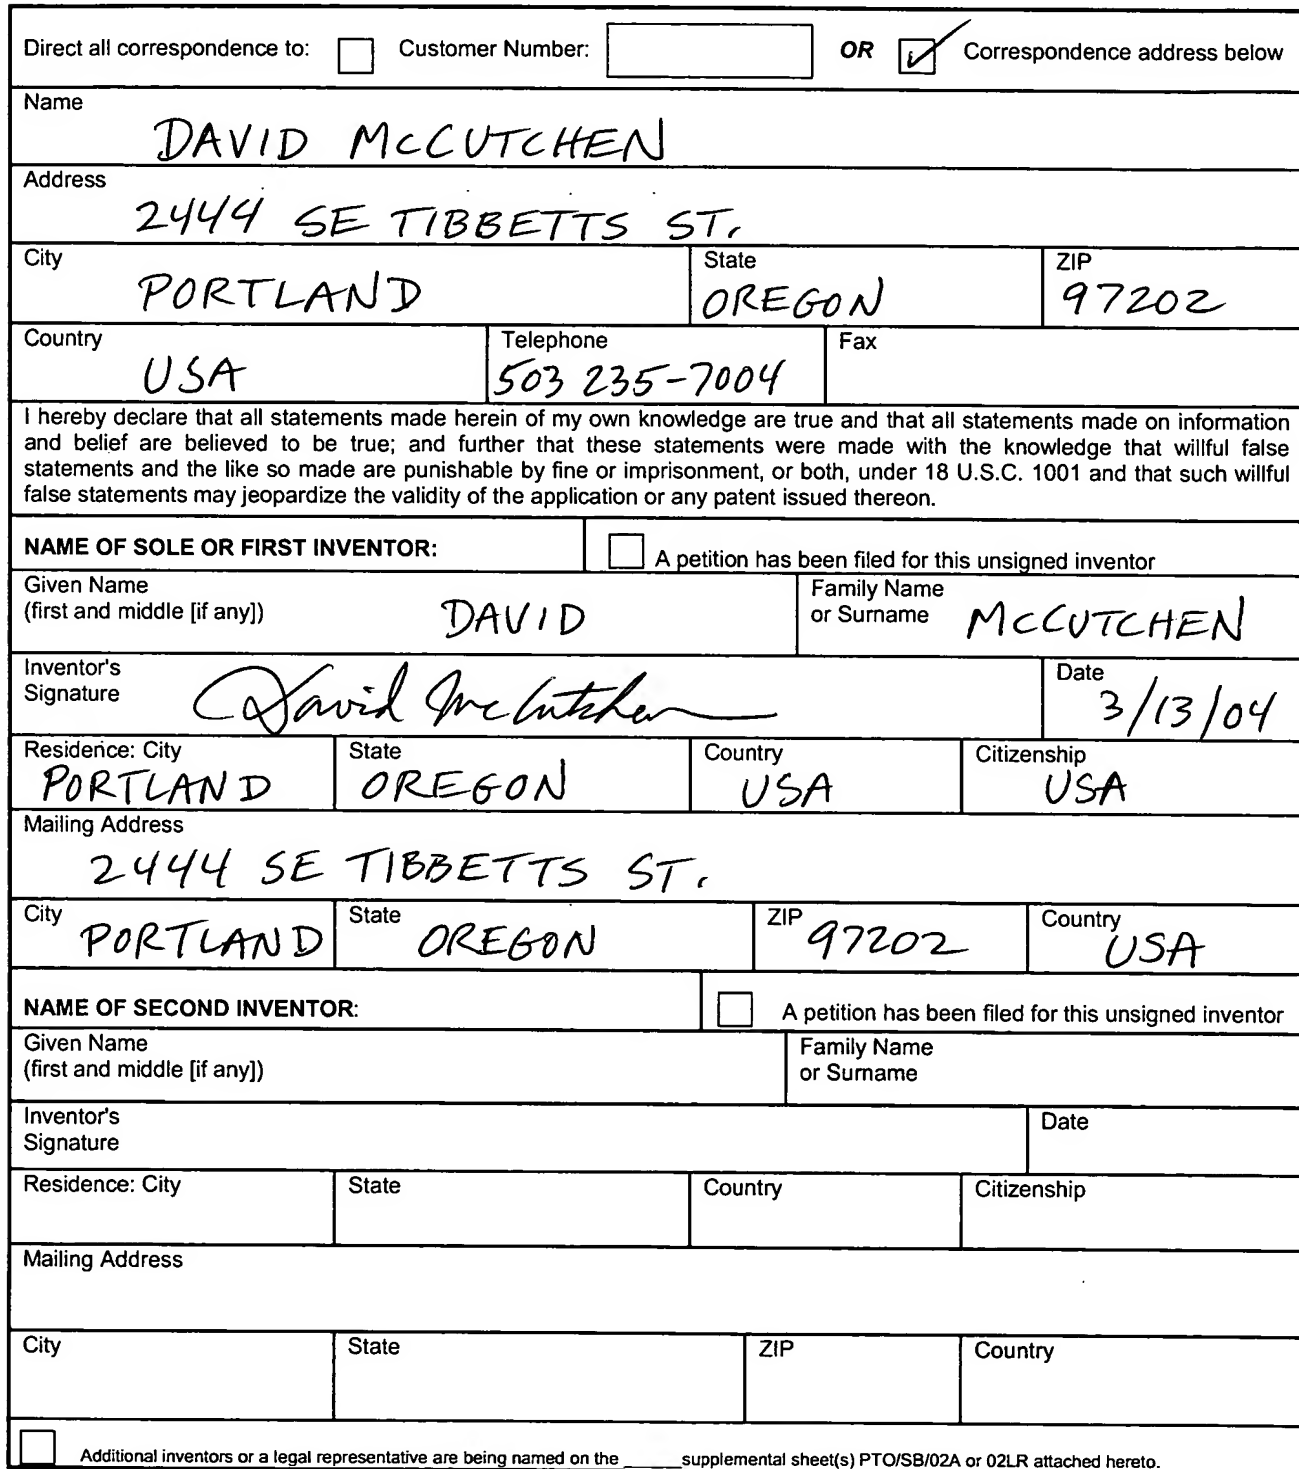 Direct all correspondence to: Customer Number: OR Correspondence address below
Name
DAVID McCUTCHEN
Address
2444 SE TIBBETTS ST.
City State ZIP
PORTLAND OREGON 97202
Country Telephone Fax
USA 503 235-7004
I hereby declare that all statements made herein of my own knowledge are true and that all statements made on information
and belief are believed to be true; and further that these statements were made with the knowledge that willful false
statements and the like so made are punishable by fine or imprisonment, or both, under 18 U.S.C. 1001 and that such willful
false statements may jeopardize the validity of the application or any patent issued thereon.
NAME OF SOLE OR FIRST INVENTOR: A petition has been filed for this unsigned inventor
Given Name Family Name
(first and middle [if any]) DAVID or Surname McCUTCHEN
Inventor's Date
Signature David McCutchen 3/13/04
Residence: City State Country Citizenship
PORTLAND OREGON USA USA
Mailing Address
2444 SE TIBBETTS ST.
City State ZIP Country
PORTLAND OREGON 97202 USA
NAME OF SECOND INVENTOR: A petition has been filed for this unsigned inventor
Given Name Family Name
(first and middle [if any]) or Surname
Inventor's Date
Signature
Residence: City State Country Citizenship
Mailing Address
City State ZIP Country
Additional inventors or a legal representative are being named on the ______supplemental sheet(s) PTO/SB/02A or 02LR attached hereto.